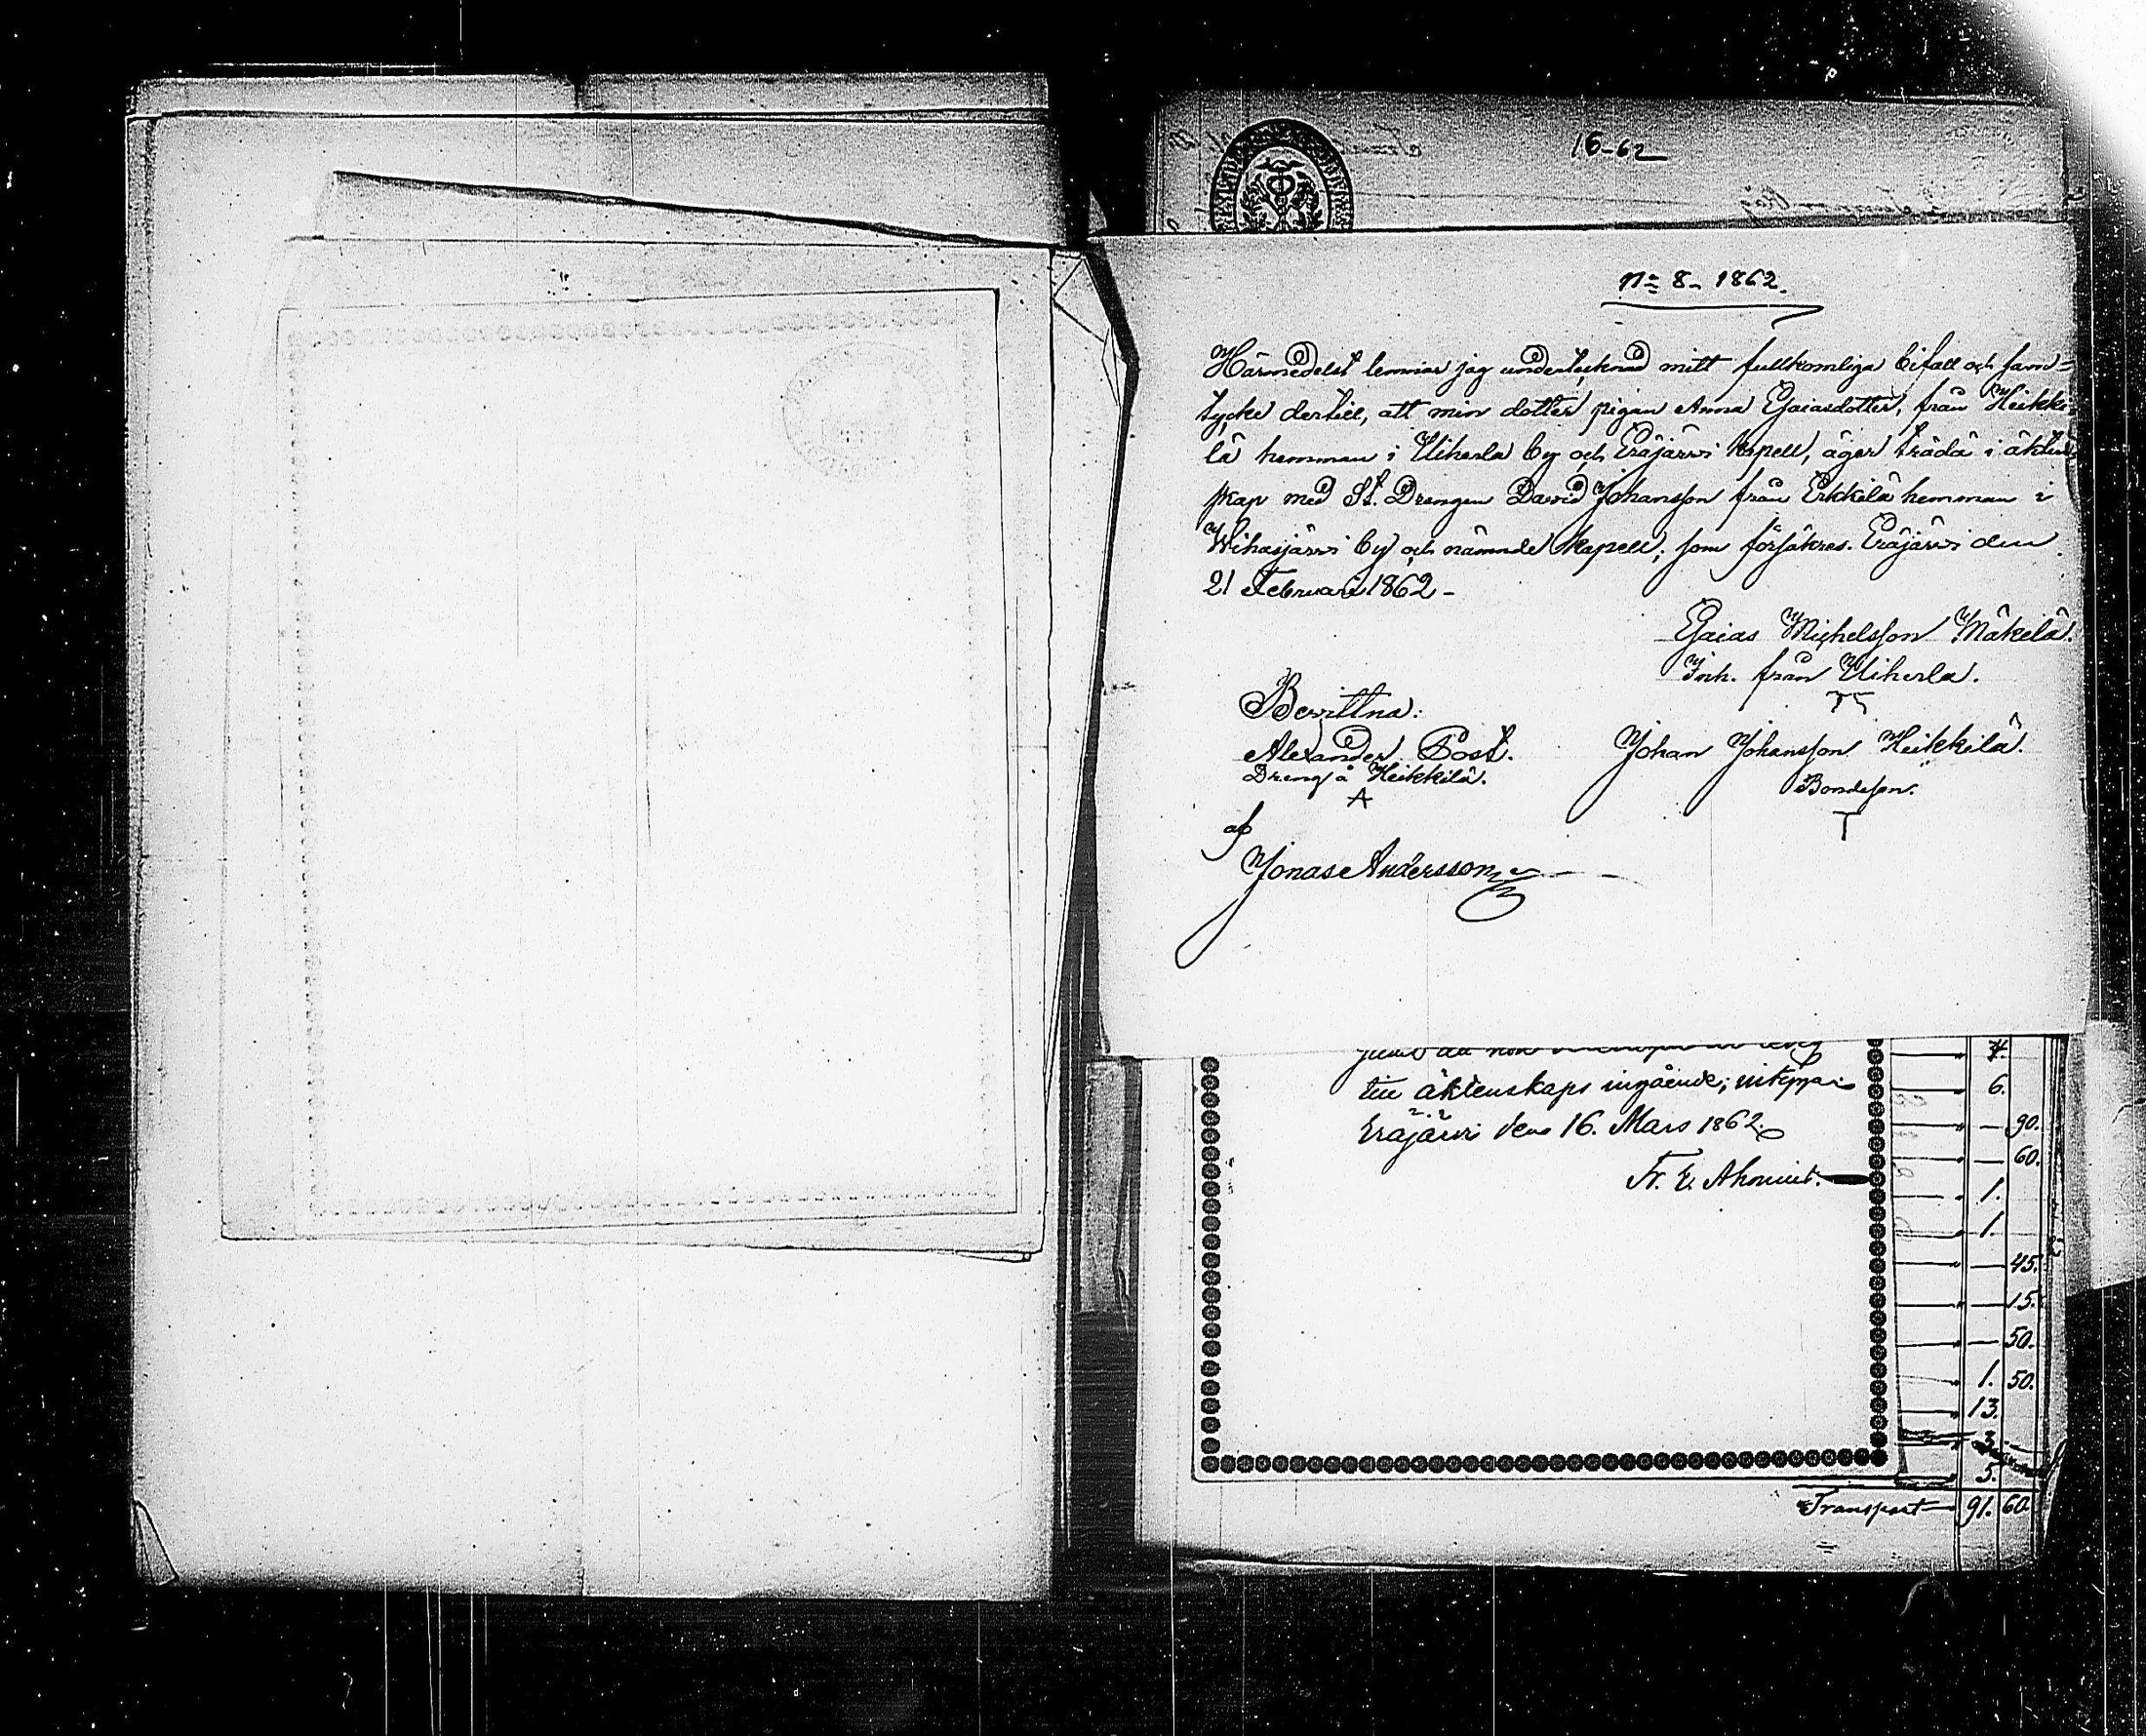 16-62
No 8- 1862.
Härmedelst lemnar jag undertecknad mitt fullkomliga bifall och sam=
tycke dertill, att min dotter pigan Anna Esaiasdotter, från Heikki-
lä hemman i Uiherla by och Eräjärvi kapell, äger träda i äkten
skap med St. Drengen David Johansson från Erkkilä hemman i
Wihasjärvi by och nämnde kapell; som försäkres. Eräjärvi den
21 Februari 1862 -
Esaias Michelsson Mäkilä.
Inh. från Uiherla.
Bevittna:
Alexander Post.
Dreng å Heikkilä.
Johan Johansson Heikkilä.
Bondeson.
af
Jonas Andersson
till äktenskaps ingående; intygar
Eräjärvi den 16. Mars 1862.
Fr. E. Ahonius.
4.
6.
— 90.
— 60.
1.
1.
— 45.
— 15.
— 50.
1. 50.
13.
3.
5.
Transport 91. 60.